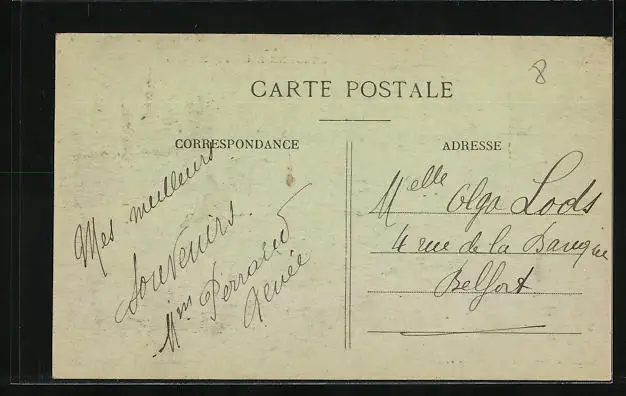 8
CARTE POSTALE
CORRESPONDANCE
Mes meilleurs
Souvenirs.
Mm Perraud
Renée
ADRESSE
Melle Olga Lods
4 rue de la Banque
Belfort